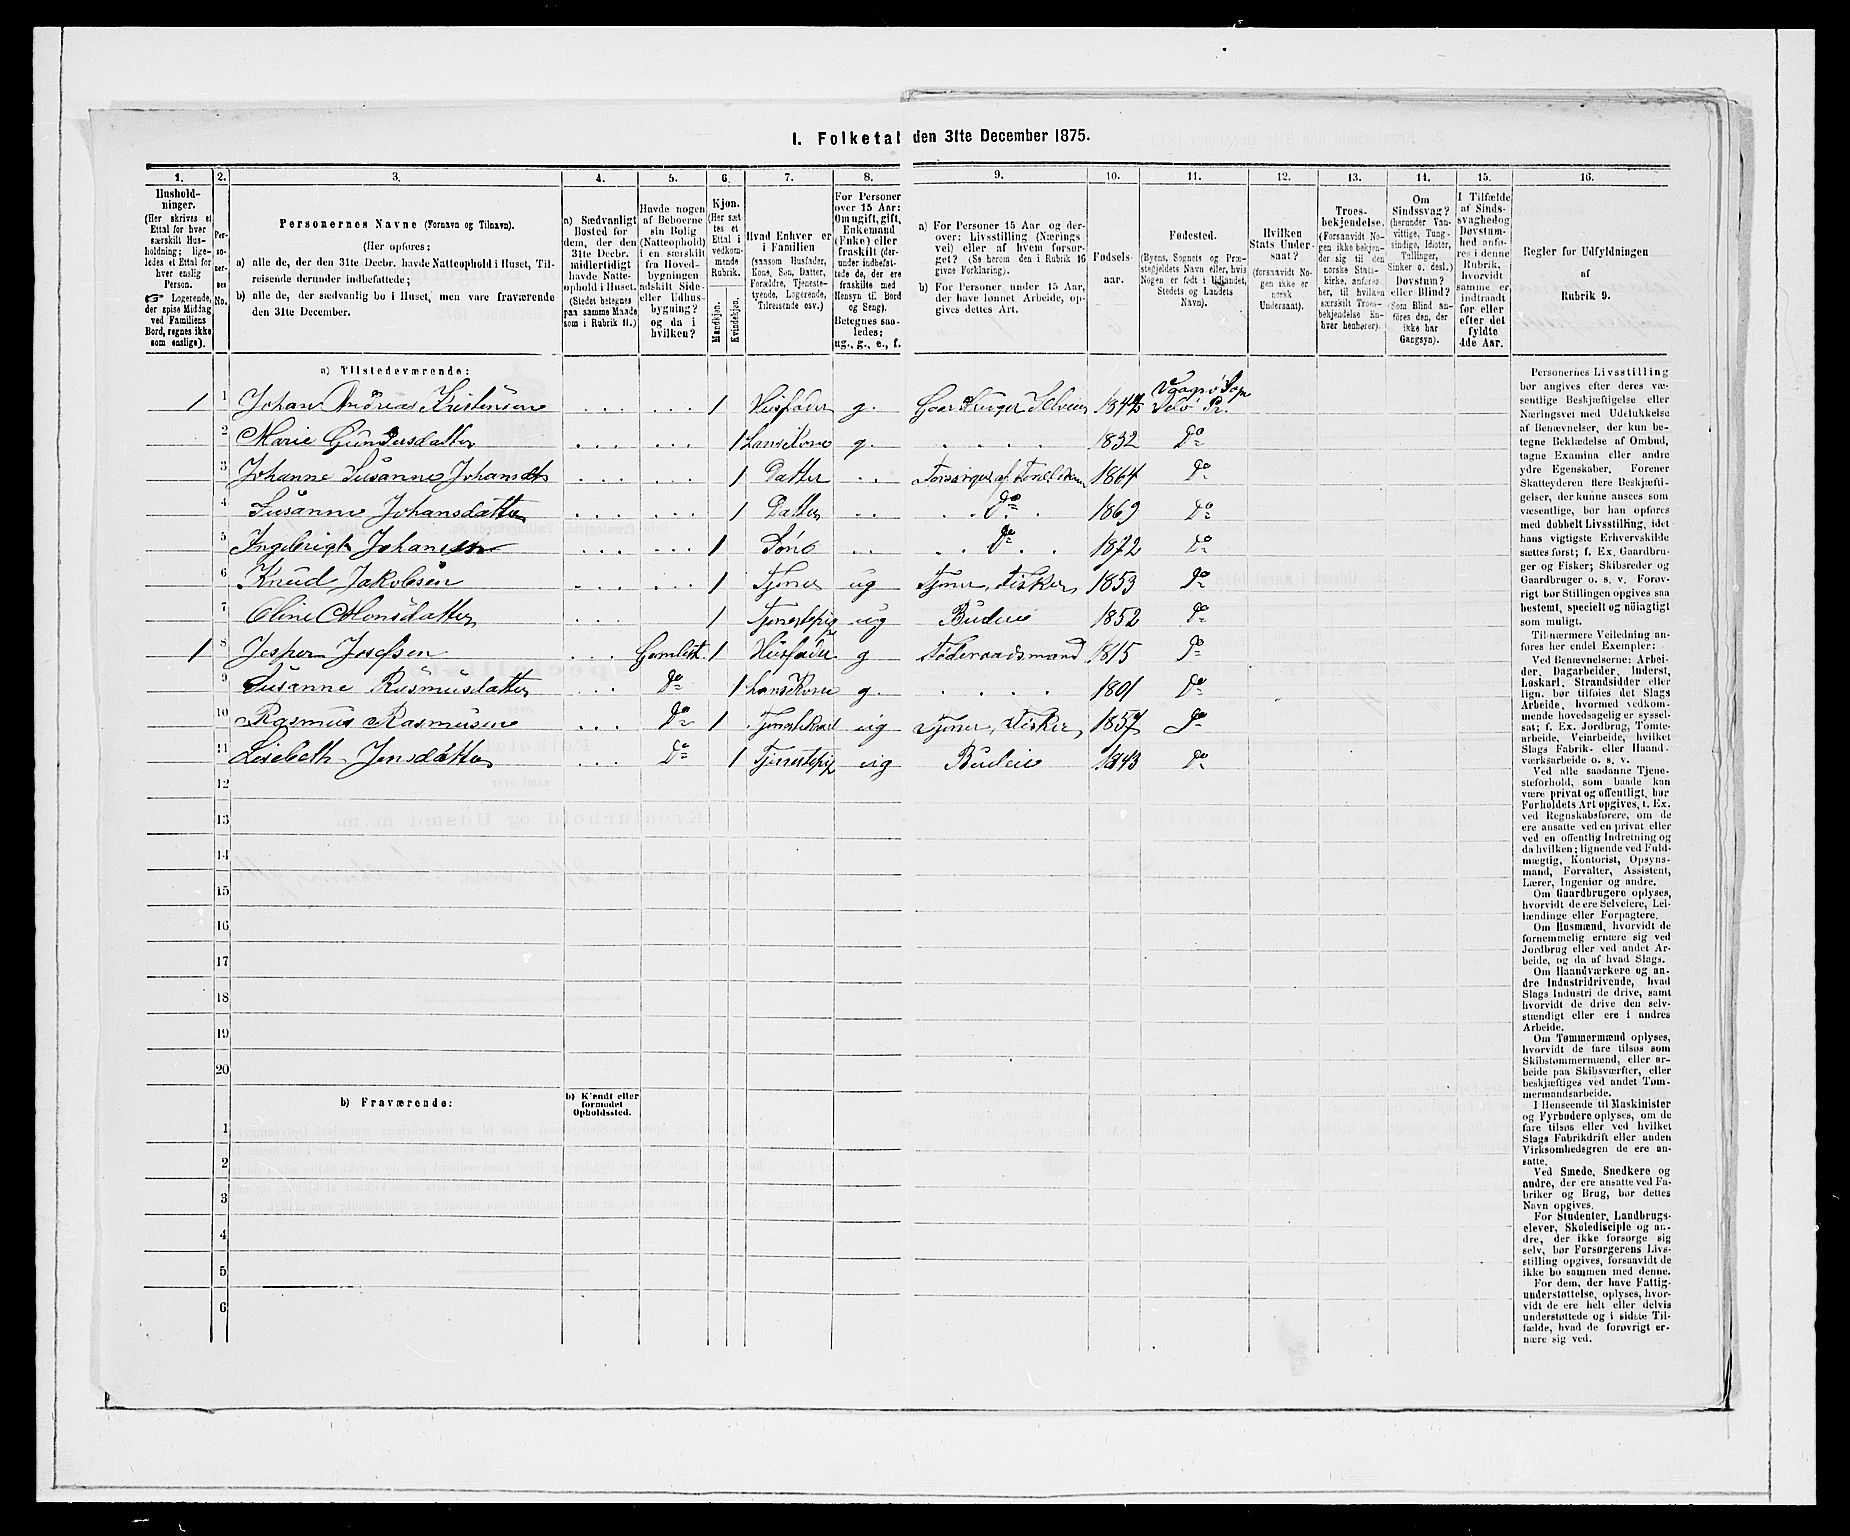 I. Folketal den 31te December 1875.
1. 2. 3. 4. 5. 6. 7. 8. 9. 10. 11. 12. 13. 14. 15. 16.
Husholdninger.
(Her skrives et
Ettal for hver
særskilt Husholdning;
ligeledes et Ettal for
hver enslig
Person.
☞ Logerende,
der spise Middag
ved Familiens
Bord, regnes ikke
som enslige).
Personernes No.
Personernes Navne (Fornavn og Tilnavn).
(Her opføres:
a) alle de, der den 31te Decbr. havde Natteophold i Huset, Tilreisende derunder indbefattede;
b) alle de, der sædvanlig bo i Huset, men vare fraværende
den 31te December.
a) Sædvanligt
Bosted for
dem, der den
31te Decbr.
midlertidigt
havde Natteophold i Huset.
(Stedet betegnes
paa samme Maade
som i Rubrik 11.)
Havde nogen
af Beboerne
sin Bolig
(Natteophold)
i en særskilt
fra Hovedbygningen
adskilt Side-
eller Udhusbygning?
og da i
hvilken?
Kjøn.
(Her sættes et
Ettal i
vedkommende
Rubrik.
Mandkjøn.
Kvindekjøn.
Hvad Enhver er
i Familien
(saasom Husfader,
Kone, Søn, Datter,
Forældre, Tjenestetyende, Logerende,
Tilreisende osv.)
For Personer
over 15 Aar:
Om ugift, gift,
Enkemand
(Enke) eller
fraskilt (derunder indbefattede de, der ere
fraskilte med
Hensyn til Bord
og Seng).
Betegnes saaledes:
ug., g., e., f.
a) For Personer 15 Aar og derover: Livsstilling (Næringsvei) eller af hvem forsørget? (Se herom den i Rubrik 16
givne Forklaring).
b) For Personer under 15 Aar,
der have lønnet Arbeide, opgives dettes Art.
Fødselsaar.
Fødested.
(Byens, Sognets og Præstegjeldets Navn eller, hvis
Nogen er født i Udlandet,
Stedets og Landets
Navn).
Hvilken
Stats Undersaat?
(forsaavidt Nogen ikke er
norsk
Undersaat).
Troesbekjendelse.
(Forsaavidt Nogen ikke bekjender sig til den
norske Statskirke, anføres
her, til hvilken
særskilt Troesbekjendelse Enhver henhører).
Om
Sindssvag?
(herunder Vanvittige, Tungsindige, Idioter,
Tullinger,
Sinker o. desl.)
Døvstum?
eller Blind?
(Som Blind anføres den, der
ikke har
Gangsyn).
I Tilfælde
af Sindssvaghed og
Døvstumhed anføres i denne
Rubrik,
hvorvidt
samme er
indtraadt
før eller
efter det
fyldte
4de Aar.
Regler for Udfyldningen
af
Rubrik 9.
a) Tilstedeværende:
1 1 Johan Andrias Kristensen ... ... 1 Husfader g. Gaardbruger Selveier 1845 Vaagsø Sogn Selø Pr.
2 Marie Gundersdatter ... ... 1 hans Kone g. .... 1832 Do
3 Johanne Susanne Johansdt ... ... 1 Datter .. Forsørges af Forældrene 1864 Do
4 Susanne Johansdatter ... ... 1 Datter .. Do 1869 Do
5 Ingebrigt Johansen ... ... 1 Søn .. Do 1872 Do
6 Knud Jakobsen ... ... 1 Tjener ug Tjener, Fisker 1853 Do
7 Oline Monsdatter ... 1 Tjenestepige ug Budeie 1852 Do
1 8 Jesper Josefsen ... 1 Husfader g Føderaadsmand 1815 Do
9 Susanne Rasmusdatter ... Do 1 hans Kone g. .... 1801 Do
10 Rasmus Rasmusen ... Do 1 Tjenestekarl ug Tjener, Fisker 1857 Do
11 Lisebeth Jensdatter ... Do 1 Tjenestepige ug Budeie 1843 Do
12
13
14
15
16
17
18
19
20
b) Fraværende:
b) Kjendt eller
formodet
Opholdssted.
1
2
3
4
5
6
Personernes Livsstilling
bør angives efter deres væsentlige Beskjæftigelse eller
Næringsvei med Udelukkelse
af Benævnelser, der kun betegne Beklædelse af Ombud,
tagne Examina eller andre
ydre Egenskaber. Forener
Skatteyderen flere Beskjæftigelser, der kunne ansees som
væsentlige, bør han opføres
med dobbelt Livsstilling, idet
hans vigtigste Erhvervskilde
sættes først; f. Ex. Gaardbruger og Fisker; Skibsreder og
Gaardbruger o. s. v. Forøvrigt bør Stillingen opgives saa
bestemt, specielt og nøiagtigt
som muligt.
Til nærmere Veiledning anføres her endel Exempler:
Ved Benævnelserne: Arbeider, Dagarbeider, Inderst,
Løskarl, Strandsidder eller
lign. bør tilføies det Slags
Arbeide, hvormed vedkommende hovedsagelig er sysselsat; f. Ex. Jordbrug, Tømtearbeide, Veiarbeide, hvilket
Slags Fabrik- eller Haandværksarbeide o. s. v.
Ved alle saadanne Tjenesteforhold, som baade kan
være privat og offentligt, bør
Forholdets Art opgives, t. Ex.
ved Regnskabsførere, om de
ere ansatte ved en privat eller
ved en offentlig Indretning og
da hvilken; lignende ved Fuldmægtig, Kontorist, Opsynsmand, Forvalter, Assistent,
Lærer, Ingeniør og andre.
Om Gaardbrugere oplyses,
hvorvidt de ere Selveiere, Leilændinge eller Forpagtere.
Om Husmænd, hvorvidt de
fornemmelig ernære sig ved
Jordbrug eller ved andet Arbeide, og da af hvad Slags.
Om Haandværkere og andre Industridrivende, hvad
Slags Industri de drive, samt
hvorvidt de drive den selvstændigt eller ere i andres
Arbeide.
Om Tømmermænd oplyses,
hvorvidt de fare tilsøs som
Skibstømmermænd, eller arbeide paa Skibsværfter, eller
beskjæftiges ved andet Tømmermandsarbeide.
I Henseende til Maskinister
og Fyrbødere oplyses, om de
fare tilsøs eller ved hvilket
Slags Fabrikdrift eller anden
Virksomhedsgren de ere ansatte.
Ved Smede, Snedkere og
andre, der ere ansatte ved Fabriker og Brug, bør dettes
Navn opgives.
For Studenter, Landbrugselever, Skoledisciple og andre, der ikke forsørge sig
selv, bør Forsørgerens Livsstilling opgives, forsaavidt de
ikke bo sammen med denne.
For dem, der have Fattigunderstøttelse, oplyses, hvorvidt de ere helt eller delvis
understøttede og i sidste Tilfælde, hvad de forøvrigt ernære sig ved.